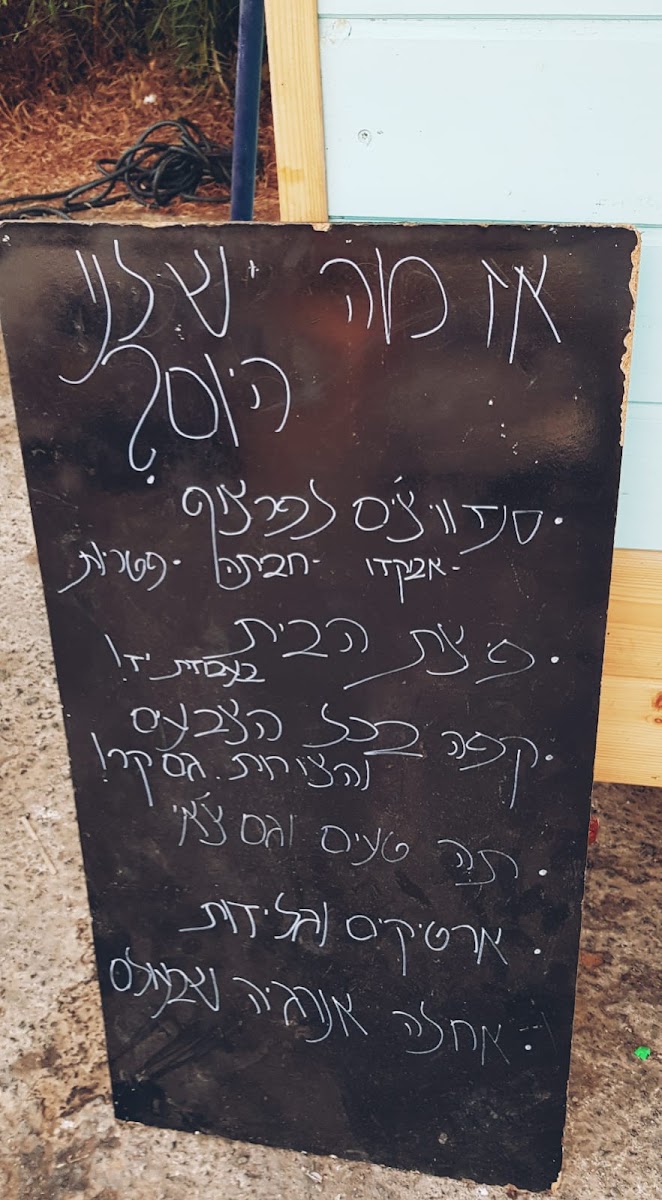 אז מה יש לנו
היום?
· סנדוויצ׳ים לפרצוף
- אבקדו - חביתה - פטריות
· פיצת הבית
בעבודת יד!
· קפה בכל הצבעים
והצורות. גם קר!
· תה טעים וגם צ׳אי
· ארטיקים וגלידות
· אחלה אנרגיה שבעולם